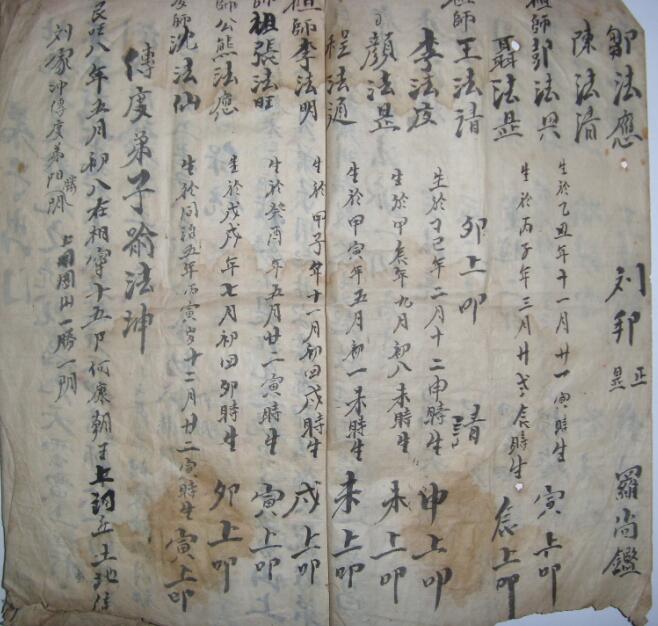 鄒法應 刘邦 正昰 羅尚鑑
陳法清
祖師彭法興 生於乙丑年十一月廿一寅時生 寅上叩
聶法昰 生於丙子年三月廿 辰時生 辰上叩
祖師王法清 卯上叩 請
李法度 生於丁巳年二月十二申時生 申上叩
顏法昰 生於甲辰年九月初八未時生 未上叩
程法通 生於甲寅年五月初一未時生 未上叩
祖師李法明 生於甲子年十一月初四戌時生 戌上叩
師祖張法旺 生於癸酉年五月廿二寅時生 寅上叩
師公熊法應 生於戊戌年七月初四卯時生 卯上叩
度師沈法仙 生於同治五年丙寅岁十二月廿二寅時生 寅上叩
傳度弟子喻法坤
民国八年五月初八在相 十五 何 朝王上 立土地
刘家冲傳度弟 勝 一勝一陰